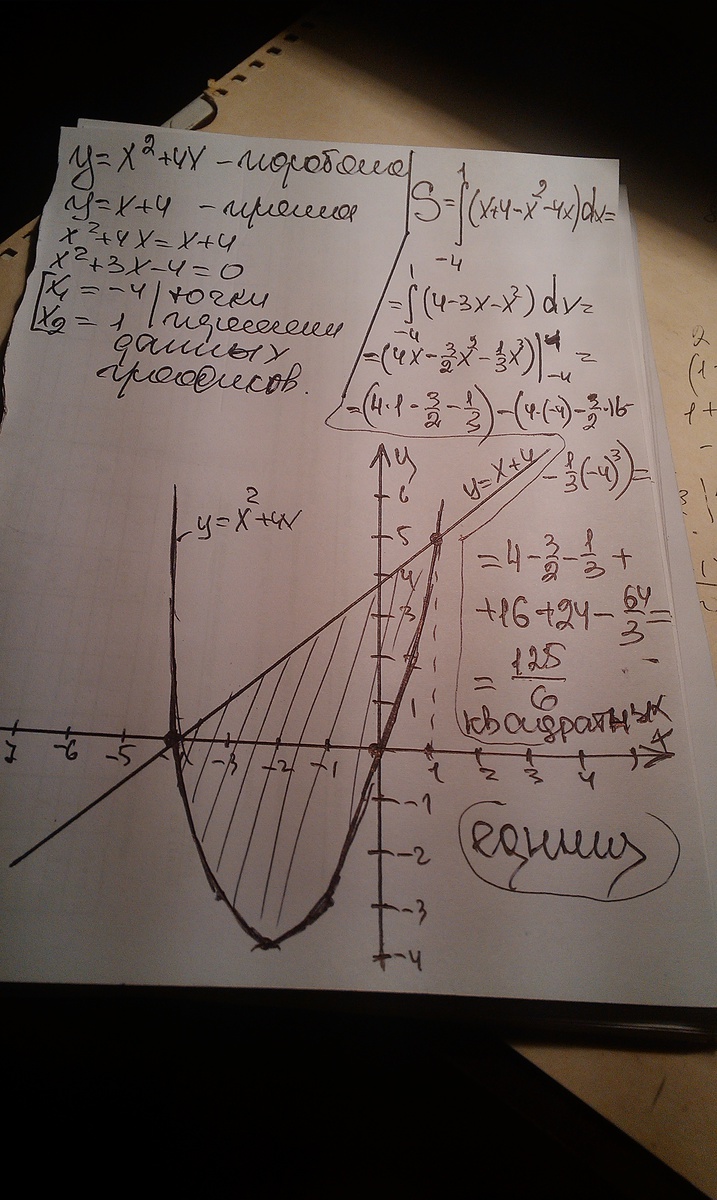 y=x²+4x – парабола
y=x+4 – прямая
x²+4x=x+4
x²+3x-4=0
[x₁=-4 | точки
x₂=1 |
данных
графиков.
S=∫₋₄¹(x+4-x²-4x)dx=
=∫₋₄¹(4-3x-x²)dx=
=(4x-3/2x²-1/3x³)|₋₄¹=
=(4·1-3/2-1/3)-(4·(-4)-3/2·16-
-1/3(-4)³)=
=4-3/2-1/3+
+16+24-64/3=
=125/6
квадратных
единиц
y=x²+4x
y=x+4
y
6
5
4
3
2
1
-7 -6 -5 -4 -3 -2 -1 1 2 3 4 x
-1
-2
-3
-4